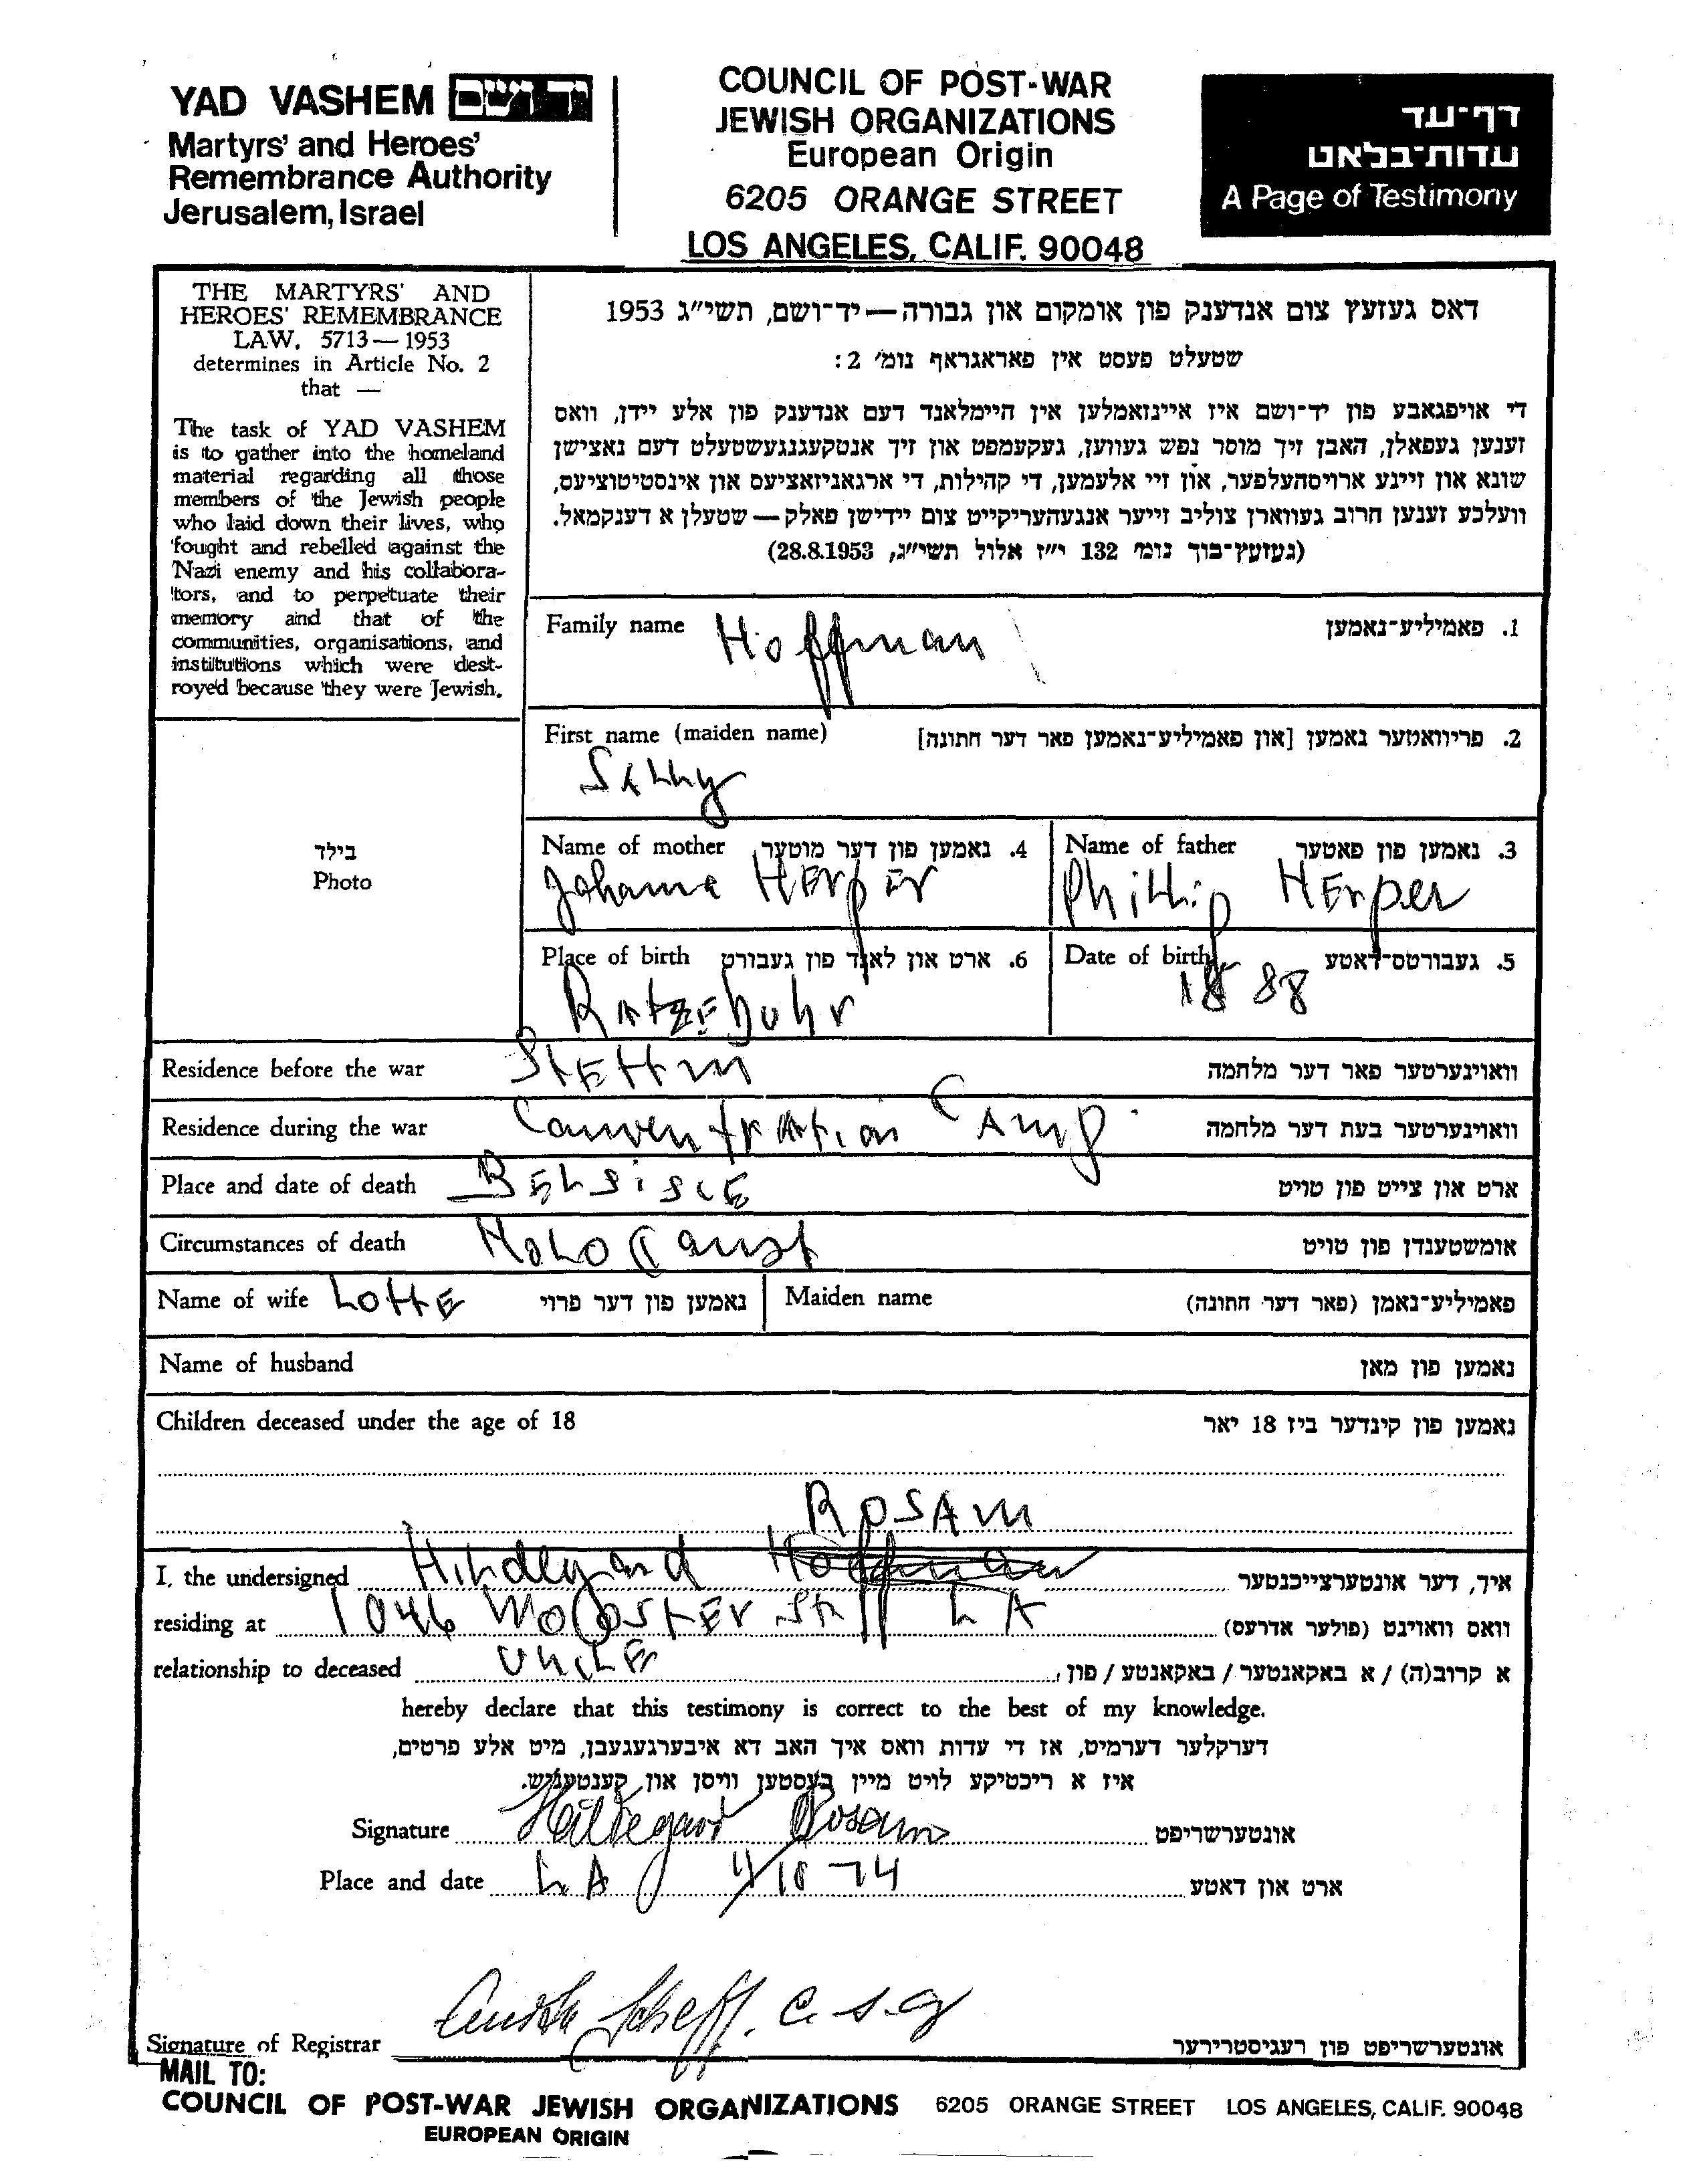 YAD VASHEM יד ושם
Martyrs' and Heroes'
Remembrance Authority
Jerusalem, Israel
COUNCIL OF POST-WAR
JEWISH ORGANIZATIONS
European Origin
6205 ORANGE STREET
LOS ANGELES, CALIF. 90048
דף-עד
עדות-בלאט
A Page of Testimony
THE MARTYRS' AND
HEROES' REMEMBRANCE
LAW, 5713—1953
determines in Article No. 2
that —
The task of YAD VASHEM
is to gather into the homeland
material regarding all those
members of the Jewish people
who laid down their lives, who
fought and rebelled against the
Nazi enemy and his collabora-
tors, and to perpetuate their
memory and that of the
communities, organisations, and
institutions which were dest-
royed because they were Jewish.
דאס געזעץ צום אנדענק פון אומקום און גבורה—יד-ושם, תשי"ג 1953
שטעלט פעסט אין פאראגראף נומ' 2:
די אויפגאבע פון יד-ושם איז איינזאמלען אין היימלאנד דעם אנדענק פון אלע יידן, וואס
זענען געפאלן, האבן זיך מוסר נפש געווען, געקעמפט און זיך אנטקעגנגעשטעלט דעם נאצישן
שונא און זיינע ארויסהעלפער, און זיי אלעמען, די קהילות, די ארגאניזאציעס און אינסטיטוציעס,
וועלכע זענען חרוב געווארן צוליב זייער אנגעהעריקייט צום יידישן פאלק—שטעלן א דענקמאל.
(געזעץ-בוך נומ' 132 י"ז אלול תשי"ג, 28.8.1953)
Family name Hoffman 1. פאמיליע-נאמען
First name (maiden name) 2. פריוואטער נאמען [און פאמיליע-נאמען פאר דער חתונה]
Sally
בילד
Photo
Name of mother 4. נאמען פון דער מוטער Name of father 3. נאמען פון פאטער
Johanna Herper Phillip Herper
Place of birth 6. ארט און לאנד פון געבורט Date of birth 5. געבורטס-דאטע
Ratzebuhr 1888
Residence before the war Stettin וואוינערטער פאר דער מלחמה
Residence during the war Conventration Camp וואוינערטער בעת דער מלחמה
Place and date of death Belsisce ארט און צייט פון טויט
Circumstances of death Holocaust אומשטענדן פון טויט
Name of wife Lotte נאמען פון דער פרוי Maiden name פאמיליע-נאמן (פאר דער חתונה)
Name of husband נאמען פון מאן
Children deceased under the age of 18 נאמען פון קינדער ביז 18 יאר
Rosam
I, the undersigned Hildegard Hoffman איך, דער אונטערצייכנטער
residing at 1046 Wooster St LA וואס וואוינט (פולער אדרעס)
relationship to deceased Uncle א קרוב(ה) / א באקאנטער / באקאנטע / פון
hereby declare that this testimony is correct to the best of my knowledge.
דערקלער דערמיט, אז די עדות וואס איך האב דא איבערגעגעבן, מיט אלע פרטים,
איז א ריכטיקע לויט מיין בעסטען וויסן און קענטעניש.
Signature Hildegard Rosam אונטערשריפט
Place and date LA 4/10 74 ארט און דאטע
Signature of Registrar Scheff. אונטערשריפט פון רעגיסטרירער
MAIL TO:
COUNCIL OF POST-WAR JEWISH ORGANIZATIONS 6205 ORANGE STREET LOS ANGELES, CALIF. 90048
EUROPEAN ORIGIN